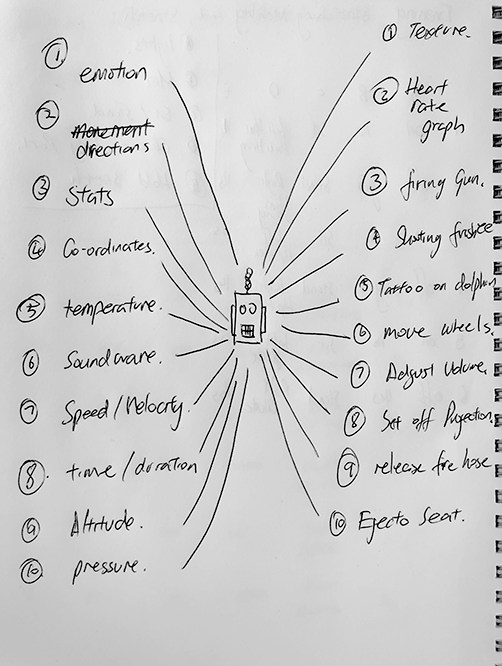 1 emotion
2 movement
directions
3 Stats
4 Co-ordinates.
5 temperature.
6 Soundwave.
7 Speed / Velocity.
8. time / duration
9 Altitude.
10 pressure.
1 Texture.
2 Heart
rate
graph
3 firing Gun.
4 Shooting frisbee
5 Tattoo on dolphin
6 move wheels.
7 Adjust Volume.
8 Set off Projection.
9 release fire hose
10 Ejecto Seat.